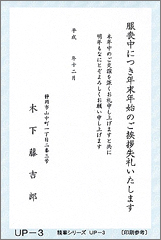 服喪中につき年末年始のご挨拶失礼いたします
本年中のご芳情を厚くお礼申し上げますと共に
明年もなにとぞよろしくお願い申し上げます
平成　年十二月
静岡市山中町一丁目二番三号
木下藤吉郎
UP－3
賀春シリーズ UP－3
(印刷参考)